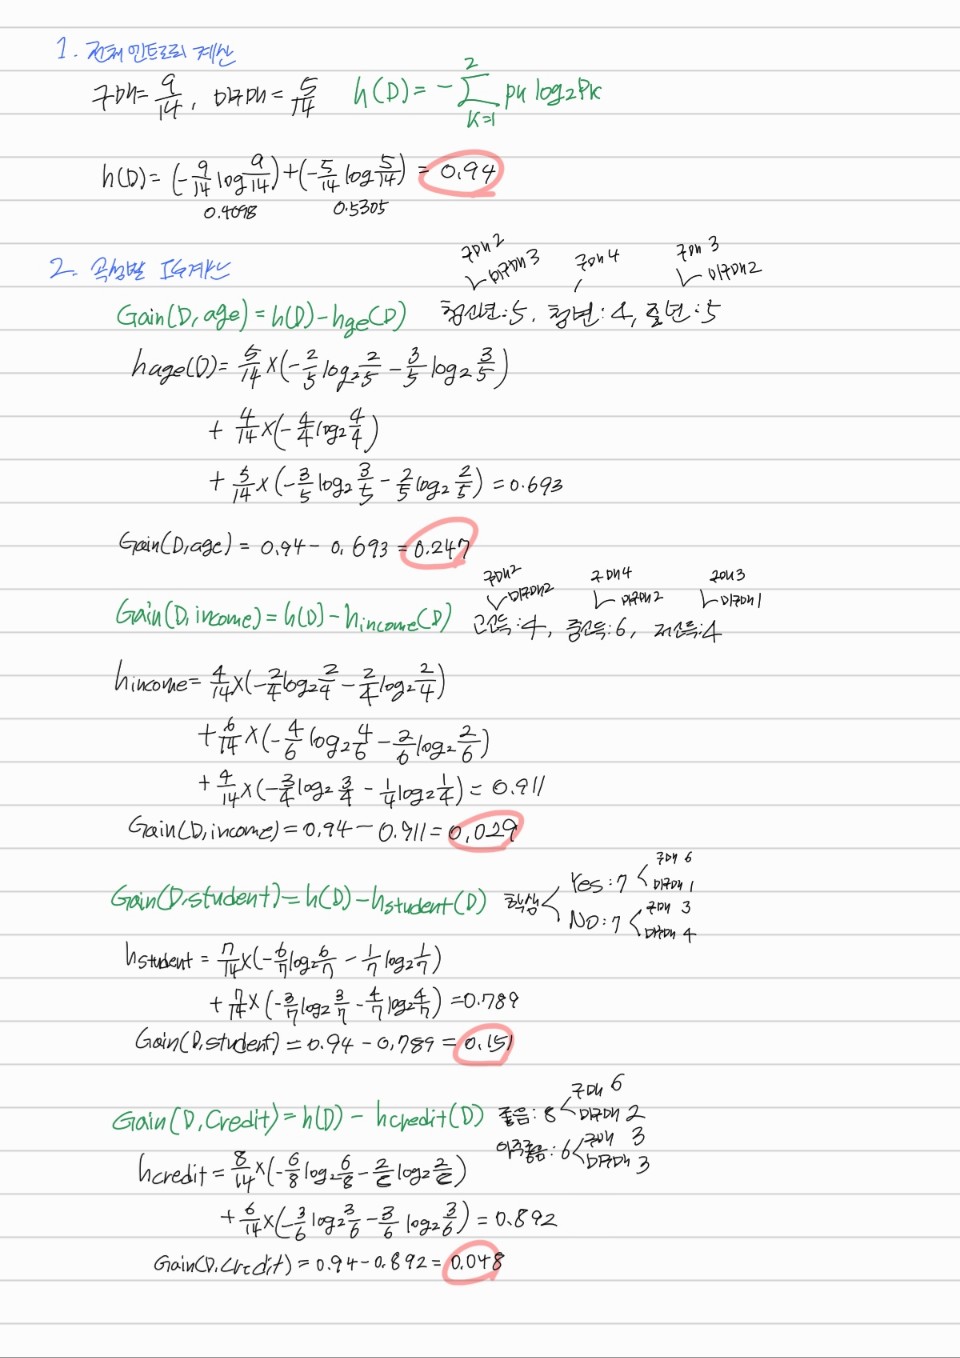 1. 전체 엔트로피 계산
구매 = 9/14, 미구매 = 5/14 h(D) = - Σ_{k=1}^{2} pk log₂Pk
h(D) = (-9/14 log 9/14) + (-5/14 log 5/14) = 0.94
0.4098 0.5305
2. 속성별 IG계산
구매 2 미구매 3 구매 4 구매 3 미구매 2
Gain(D, age) = h(D) - hge(D) 청소년:5, 청년:4, 중년:5
hage(D) = 5/14 × (-2/5 log₂ 2/5 - 3/5 log₂ 3/5)
+ 4/14 × (-4/4 log₂ 4/4)
+ 5/14 × (-3/5 log₂ 3/5 - 2/5 log₂ 2/5) = 0.693
Gain(D, age) = 0.94 - 0.693 = 0.247
구매2 미구매2 구매4 미구매2 구매3 미구매1
Gain(D, income) = h(D) - hincome(D) 고소득:4, 중소득:6, 저소득:4
hincome = 4/14 × (-2/4 log₂ 2/4 - 2/4 log₂ 2/4)
+ 6/14 × (-4/6 log₂ 4/6 - 2/6 log₂ 2/6)
+ 4/14 × (-3/4 log₂ 3/4 - 1/4 log₂ 1/4) = 0.911
Gain(D, income) = 0.94 - 0.911 = 0.029
Gain(D, student) = h(D) - hstudent(D) 학생 Yes:7 구매 6 미구매 1
No:7 구매 3 미구매 4
hstudent = 7/14 × (-6/7 log₂ 6/7 - 1/7 log₂ 1/7)
+ 7/14 × (-3/7 log₂ 3/7 - 4/7 log₂ 4/7) = 0.789
Gain(D, student) = 0.94 - 0.789 = 0.151
Gain(D, Credit) = h(D) - hcredit(D) 좋음:8 구매 6 미구매 2
아주좋음:6 구매 3 미구매 3
hcredit = 8/14 × (-6/8 log₂ 6/8 - 2/8 log₂ 2/8)
+ 6/14 × (-3/6 log₂ 3/6 - 3/6 log₂ 3/6) = 0.892
Gain(D, Credit) = 0.94 - 0.892 = 0.048